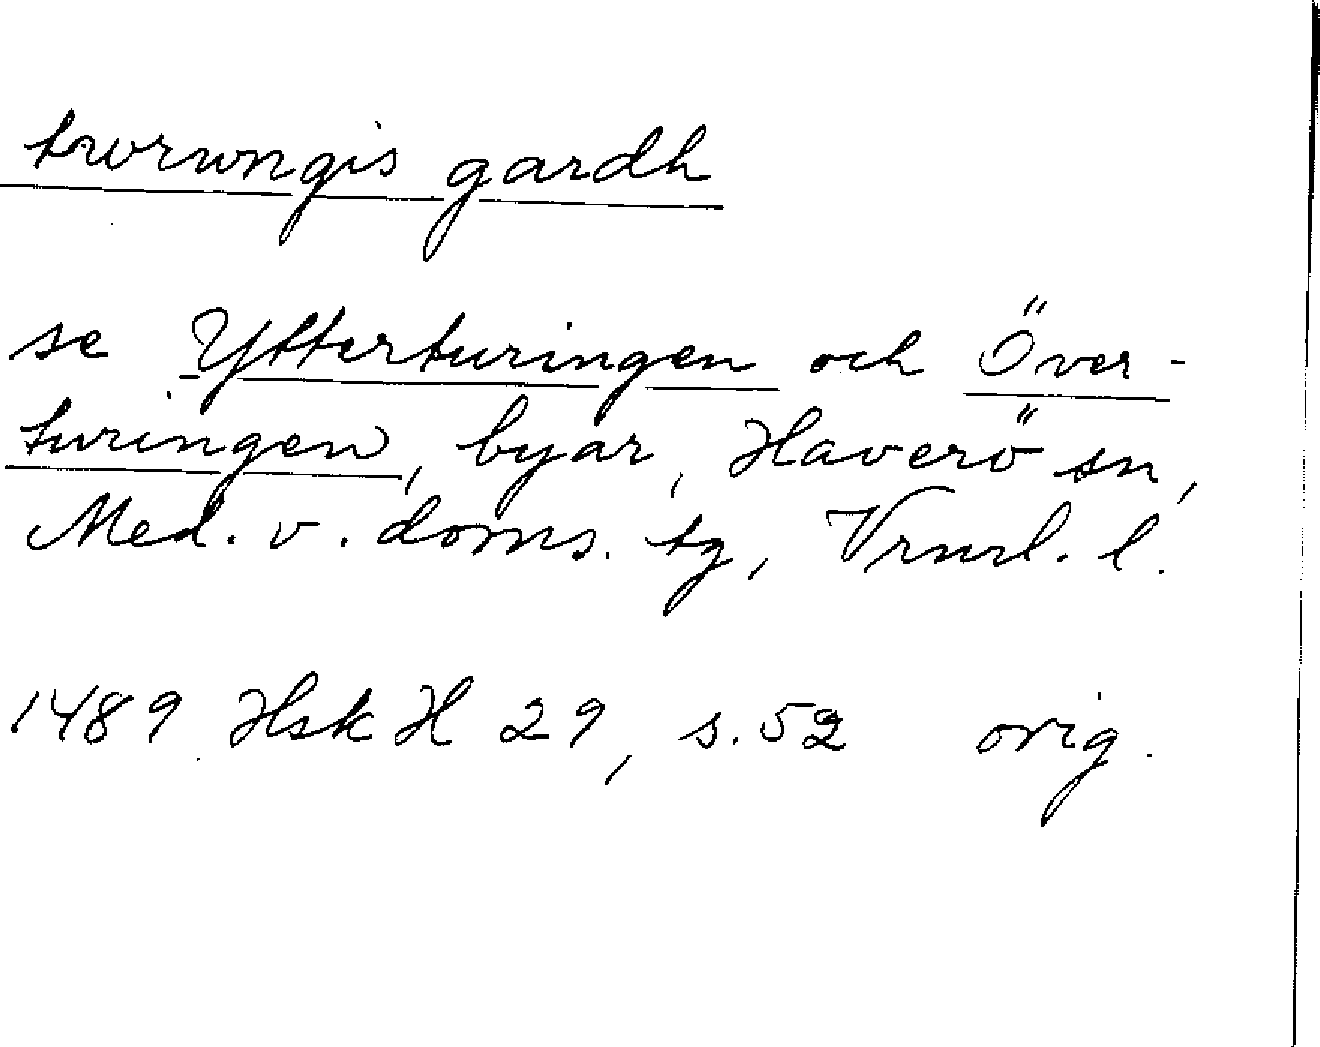 twrwngis gardh
se Ytterturingen och Över-
turingen, byar, Haverö sn,
Med. v. doms. tg, Vrnrl. l.
1489 Hsk H 29, s. 52 orig.